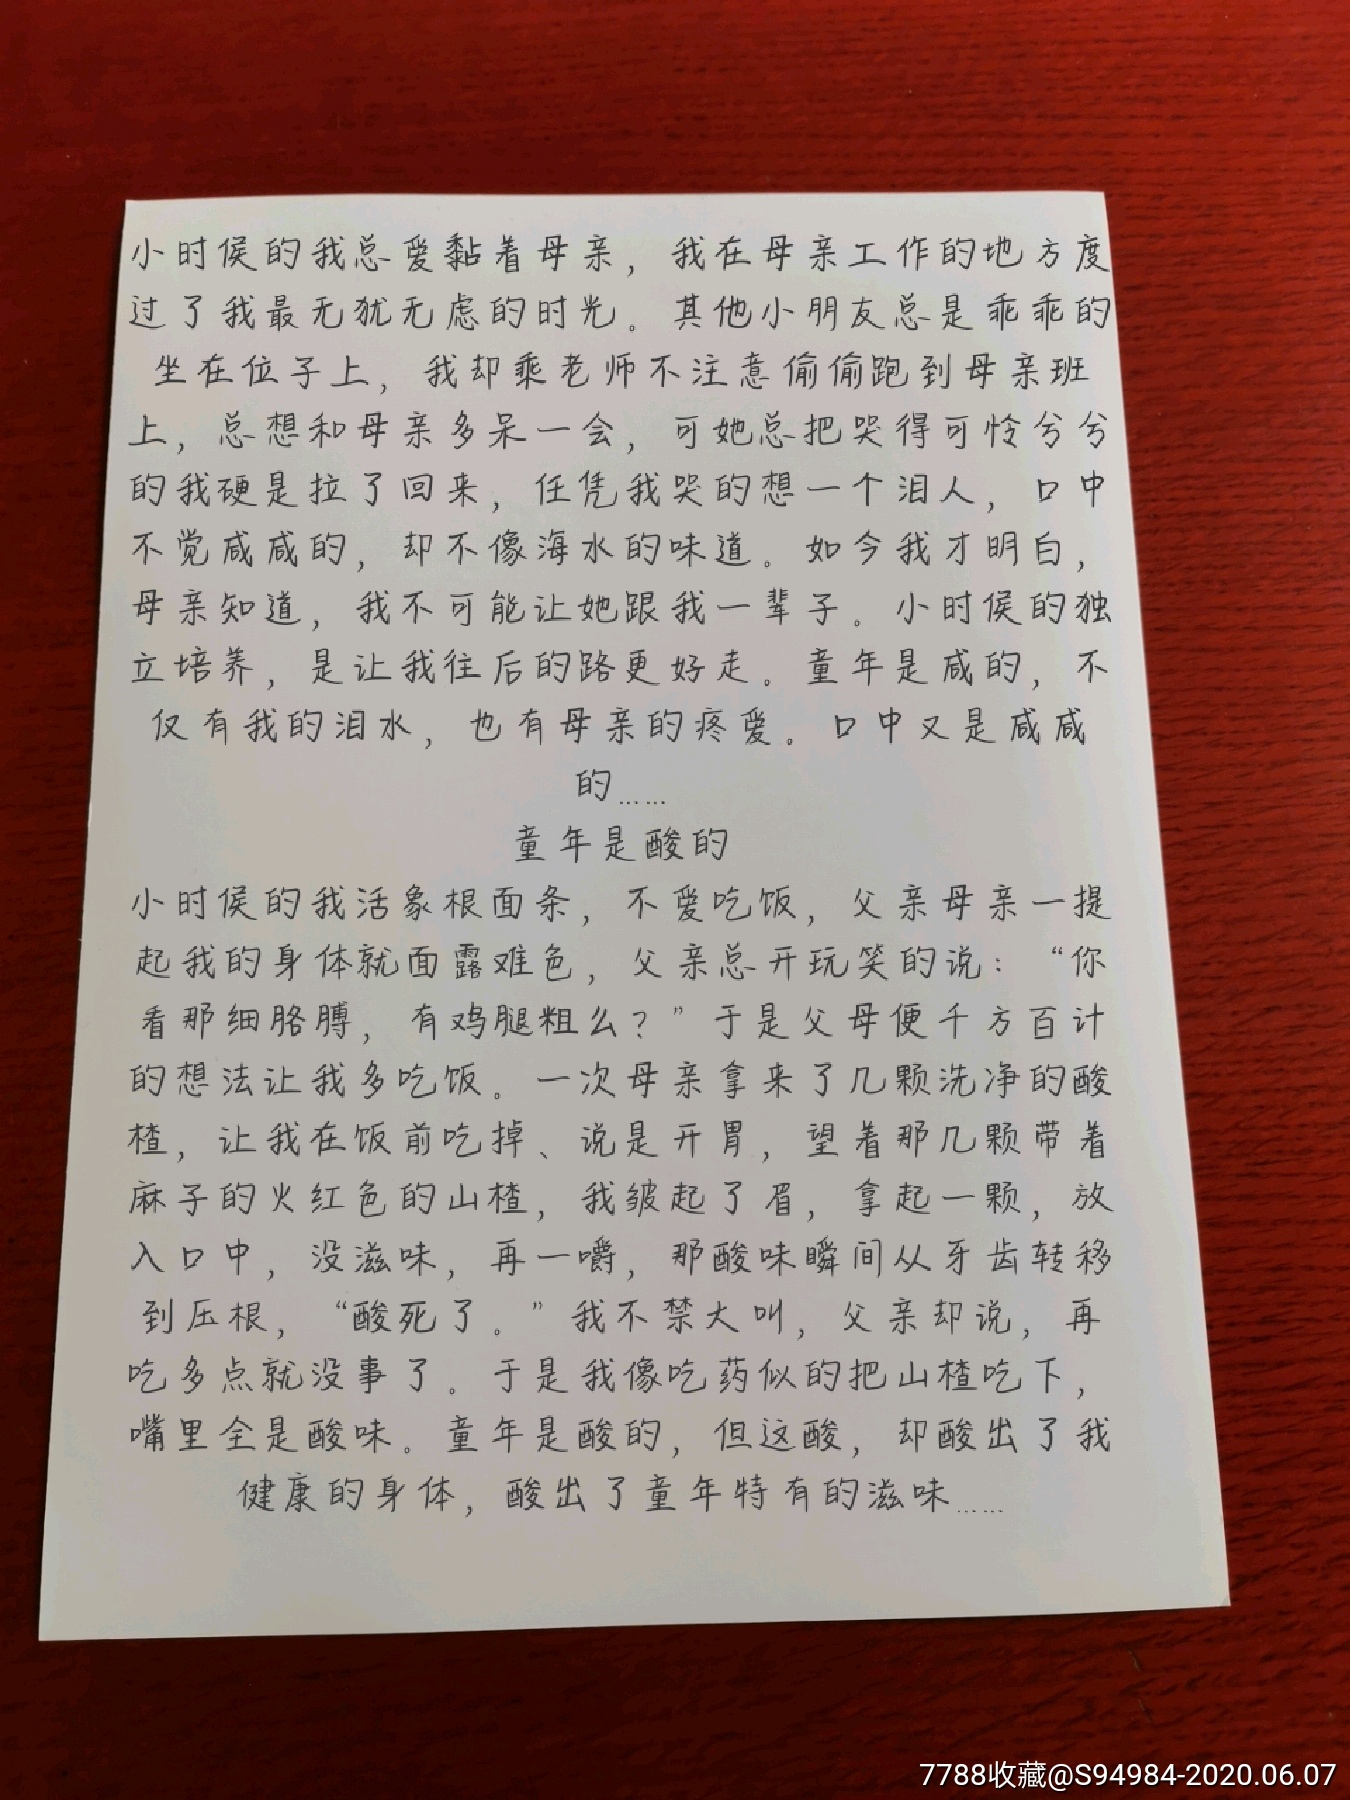 小时侯的我总爱黏着母亲，我在母亲工作的地方度
过了我最无犹无虑的时光。其他小朋友总是乖乖的
坐在位子上，我却乘老师不注意偷偷跑到母亲班
上，总想和母亲多呆一会，可她总把哭得可怜兮兮
的我硬是拉了回来，任凭我哭的想一个泪人，口中
不觉咸咸的，却不像海水的味道。如今我才明白，
母亲知道，我不可能让她跟我一辈子。小时侯的独
立培养，是让我往后的路更好走。童年是咸的，不
仅有我的泪水，也有母亲的疼爱。口中又是咸咸
的……
童年是酸的
小时侯的我活象根面条，不爱吃饭，父亲母亲一提
起我的身体就面露难色，父亲总开玩笑的说：“你
看那细胳膊，有鸡腿粗么？”于是父母便千方百计
的想法让我多吃饭。一次母亲拿来了几颗洗净的酸
楂，让我在饭前吃掉、说是开胃，望着那几颗带着
麻子的火红色的山楂，我皱起了眉，拿起一颗，放
入口中，没滋味，再一嚼，那酸味瞬间从牙齿转移
到压根，“酸死了。”我不禁大叫，父亲却说，再
吃多点就没事了。于是我像吃药似的把山楂吃下，
嘴里全是酸味。童年是酸的，但这酸，却酸出了我
健康的身体，酸出了童年特有的滋味……
7788收藏@S94984-2020.06.07